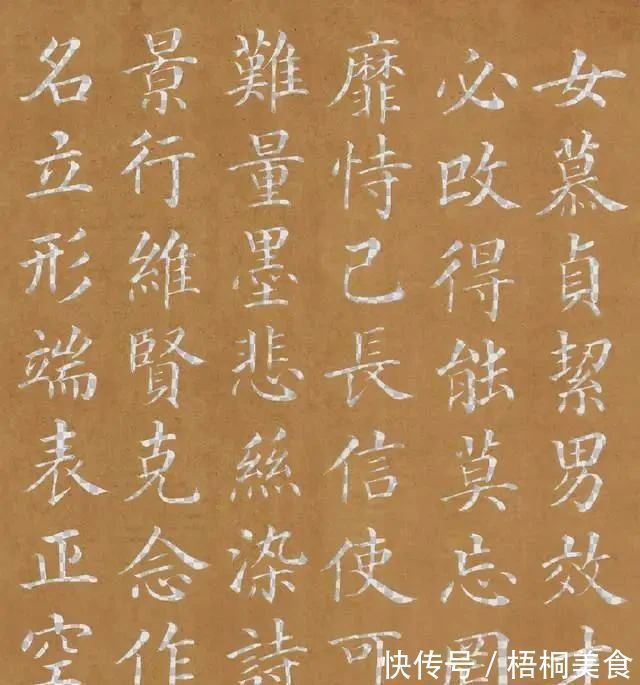 女慕貞絜男效
必改得能莫忘罔
靡恃己長信使可
難量墨悲絲染詩
景行維賢克念作
名立形端表正空
快传号/梧桐美食